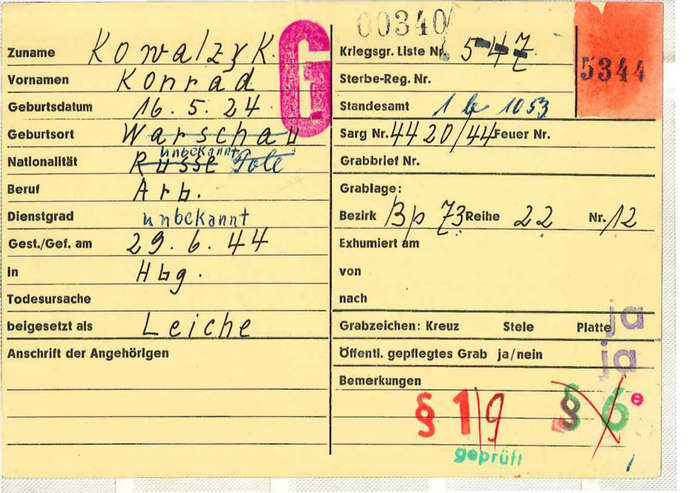 00340
Zuname Kowalzyk
Vornamen Konrad
Geburtsdatum 16.5.24
Geburtsort Warschau
unbekannt
Nationalität Russe Pole
Beruf Arb.
Dienstgrad unbekannt
Gest./Gef. am 29.6.44
in Hbg.
Todesursache
beigesetzt als Leiche
Anschrift der Angehörigen
G
Kriegsgr. Liste Nr. 547
5344
Sterbe-Reg. Nr.
Standesamt 1b 1053
Sarg Nr. 4420/44 Feuer Nr.
Grabbrief Nr.
Grablage:
Bezirk Bp 73 Reihe 22 Nr. 12
Exhumiert am
von
nach
Grabzeichen: Kreuz Stele Platte ja
Öffentl. gepflegtes Grab ja/nein ja
Bemerkungen
§ 1/9 § 6 e
geprüft